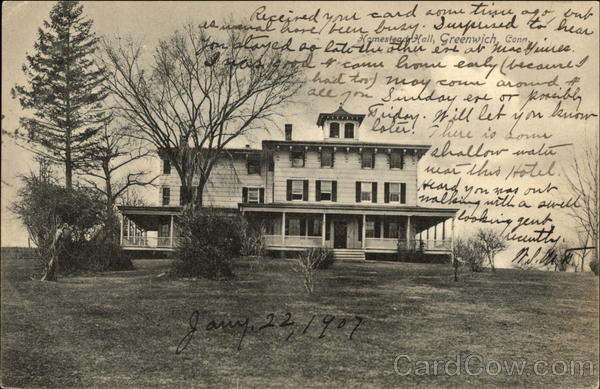 Received your card some time ago, but
as usual have been busy. Surprised to hear
Homestead Hall, Greenwich, Conn.
you stayed so late the other eve at
I was good & came home early (because I
had too) may come around &
see you Sunday eve or possibly
Friday. Will let you know
later. There is some
shallow water
near this Hotel.
Heard you was out
walking with a swell
looking gent
recently.
Jany. 22, 1907
CardCow.com